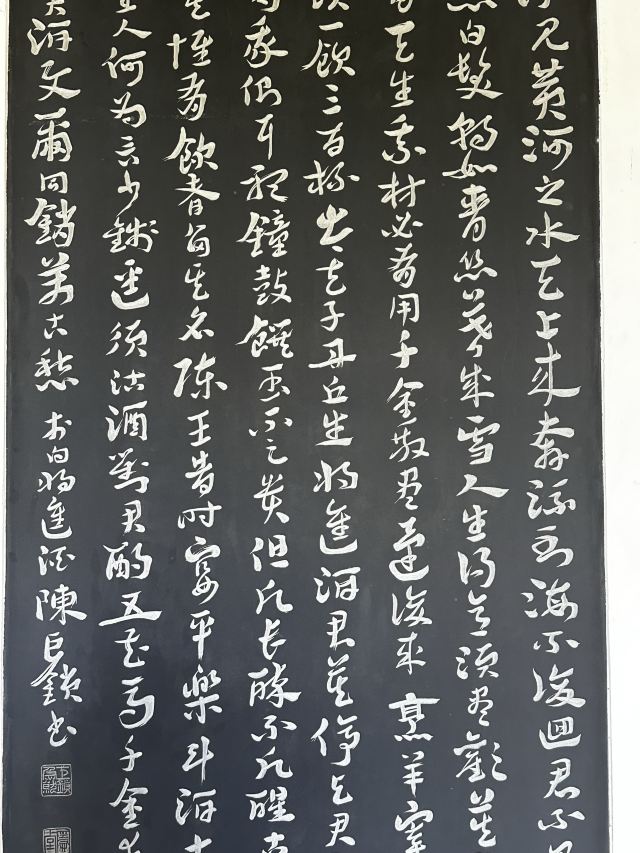 見黃河之水天上來奔流到海不復迴君不
白髮朝如青絲暮成雪人生得意須盡歡莫
天生我材必有用千金散盡還復來烹羊宰
須一飲三百杯岑夫子丹丘生將進酒君莫停與君
我側耳聽鐘鼓饌玉不足貴但願長醉不願醒古
惟有飲者留其名陳王昔時宴平樂斗酒十
主人何為言少錢逕須沽酒對君酌五花馬千金裘
美酒與爾同銷萬古愁 李白將進酒陳巨鎖書